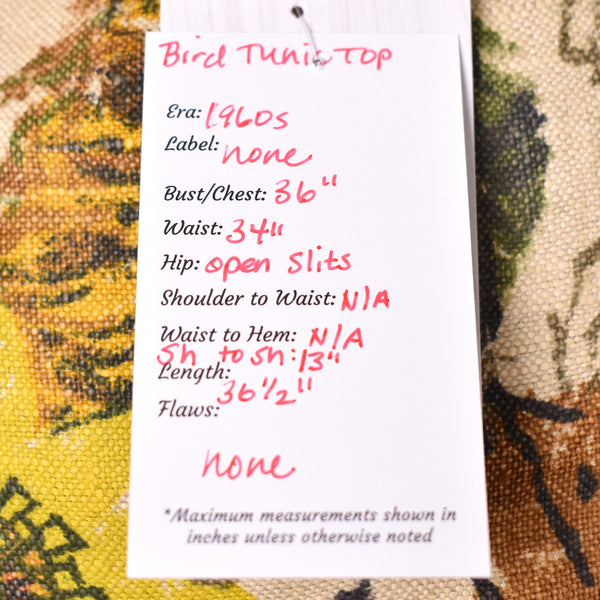 Bird Tunic Top
Era: 1960s
Label: none
Bust/Chest: 36"
Waist: 34"
Hip: open slits
Shoulder to Waist: N/A
Waist to Hem: N/A
Sh to Sh: 13"
Length: 36 1/2"
Flaws:
none
*Maximum measurements shown in
inches unless otherwise noted